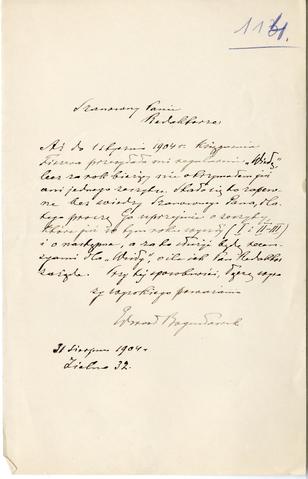 116.
Szanowny Panie
Redaktorze,
Aż do 1 stycznia 1904 r. Księgarnia
Fiszera przesyłała mi regularnie „Wisłę",
lecz za rok bieżący nie otrzymałem już
ani jednego zeszytu. Stało się to zapew-
ne bez wiedzy Szanownego Pana, dla-
tego proszę Go uprzejmie o zeszyty
które już do tym roku wyszły (I i II-III)
i o następne, a za to służyć będę recen-
zyami dla „Wisły", o ile ich Pan Redaktor
zażąda. Przy tej sposobności, łączę wyra-
zy wysokiego poważania
Edward
31 Sierpnia 1904 r.
Zielna 32.